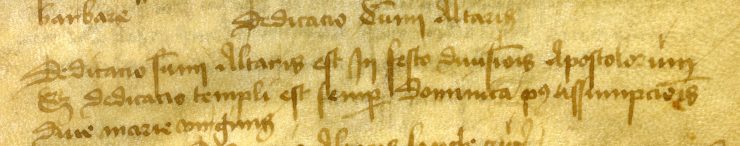 barbare Dedicacio su͞mi Altaris
Dedicacio su͞mi Altaris est In festo diuisio͞is Apostolorum
Et dedicacio templi est semp Dominica͞ pꝰ assumpcio͞is
Marie virginis
Altaris